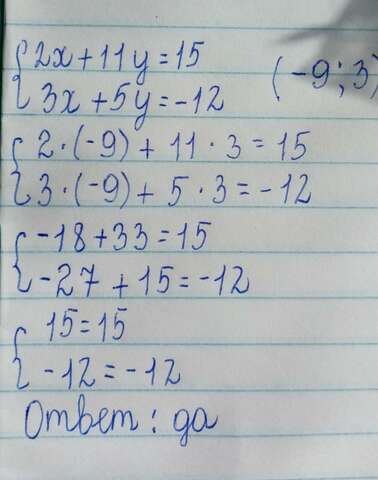 2x+11y=15 (-9;3)
3x+5y=-12
2·(-9)+11·3=15
3·(-9)+5·3=-12
-18+33=15
-27+15=-12
15=15
-12=-12
Ответ: да